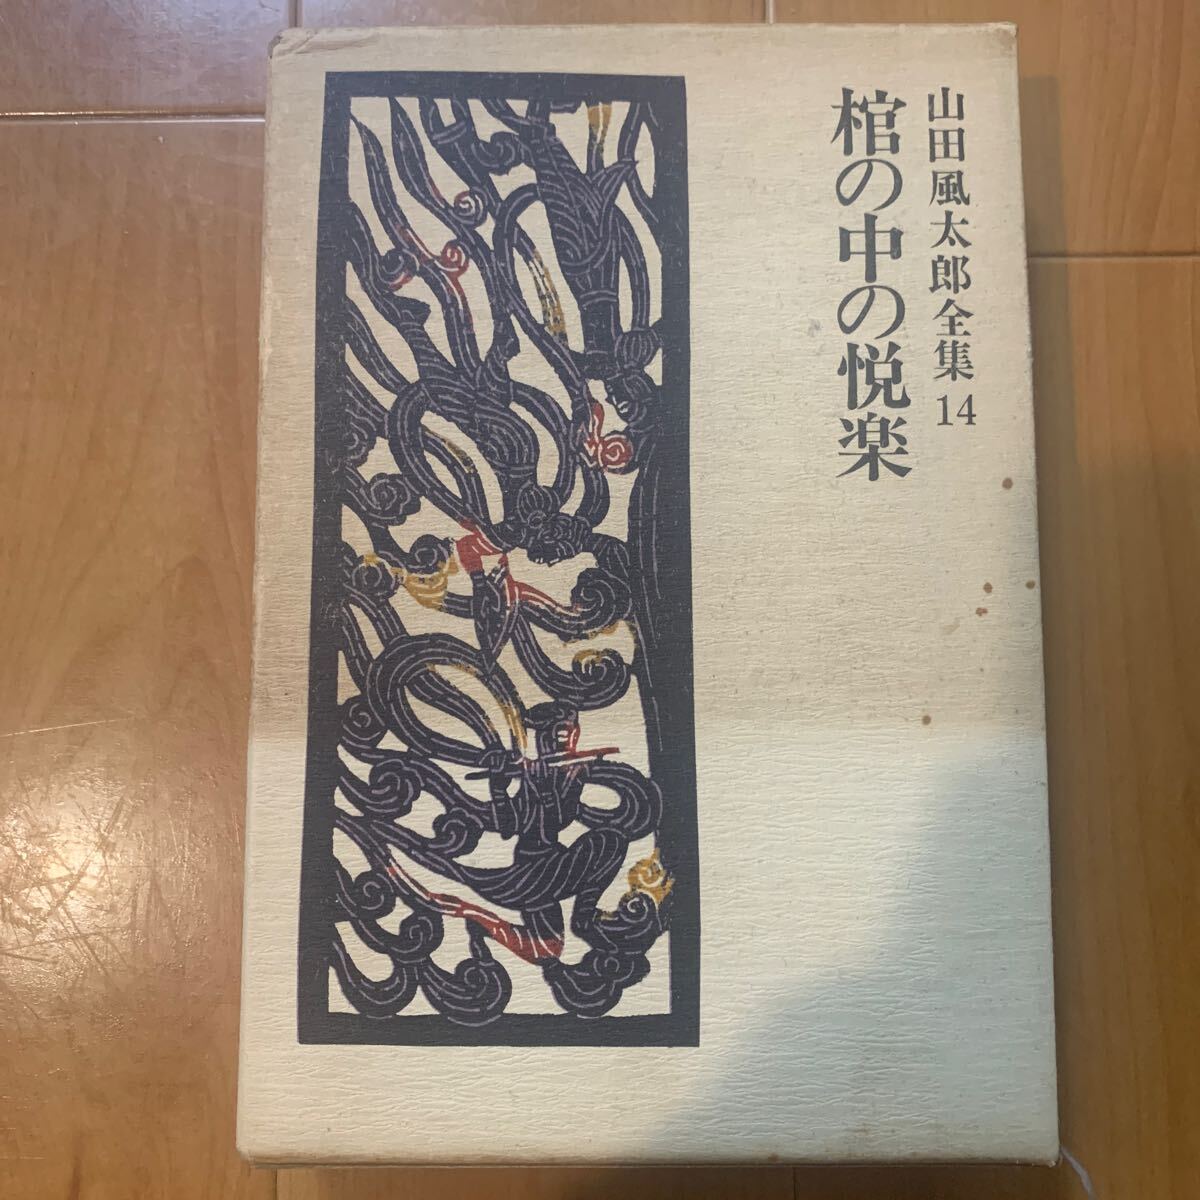 山田風太郎全集 14
棺の中の悦楽